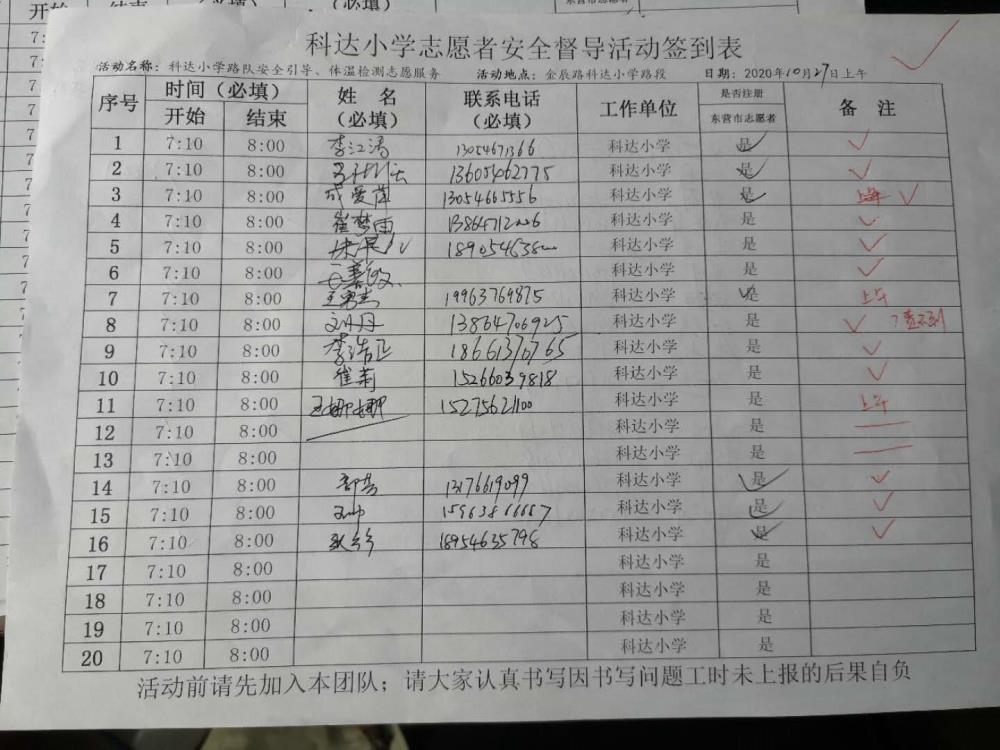 科达小学志愿者安全督导活动签到表
活动名称：科达小学路队安全引导、体温检测志愿服务 活动地点：金辰路科达小学路段 日期：2020年10月27日上午
序号 时间（必填） 姓 名 联系电话 工作单位 是否注册 备 注
开始 结束 （必填） （必填） 东营市志愿者
1 7:10 8:00 李江涛 13054671366 科达小学 是
2 7:10 8:00 13605462775 科达小学 是
3 7:10 8:00 成爱萍 13054665556 科达小学 是 上午
4 7:10 8:00 崔梦雨 科达小学 是
5 7:10 8:00 科达小学 是
6 7:10 8:00 科达小学 是
7 7:10 8:00 王勇杰 19963769875 科达小学 是 上午
8 7:10 8:00 刘丹 13864706925 科达小学 是 ?查不到
9 7:10 8:00 李浩正 18661370765 科达小学 是
10 7:10 8:00 崔莉 15266039818 科达小学 是
11 7:10 8:00 王娜娜 15275621100 科达小学 是 上午
12 7:10 8:00 科达小学 是
13 7:10 8:00 科达小学 是
14 7:10 8:00 13176619099 科达小学 是
15 7:10 8:00 科达小学 是
16 7:10 8:00 18954635798 科达小学 是
17 7:10 8:00 科达小学 是
18 7:10 8:00 科达小学 是
19 7:10 8:00 科达小学 是
20 7:10 8:00 科达小学 是
活动前请先加入本团队；请大家认真书写因书写问题工时未上报的后果自负